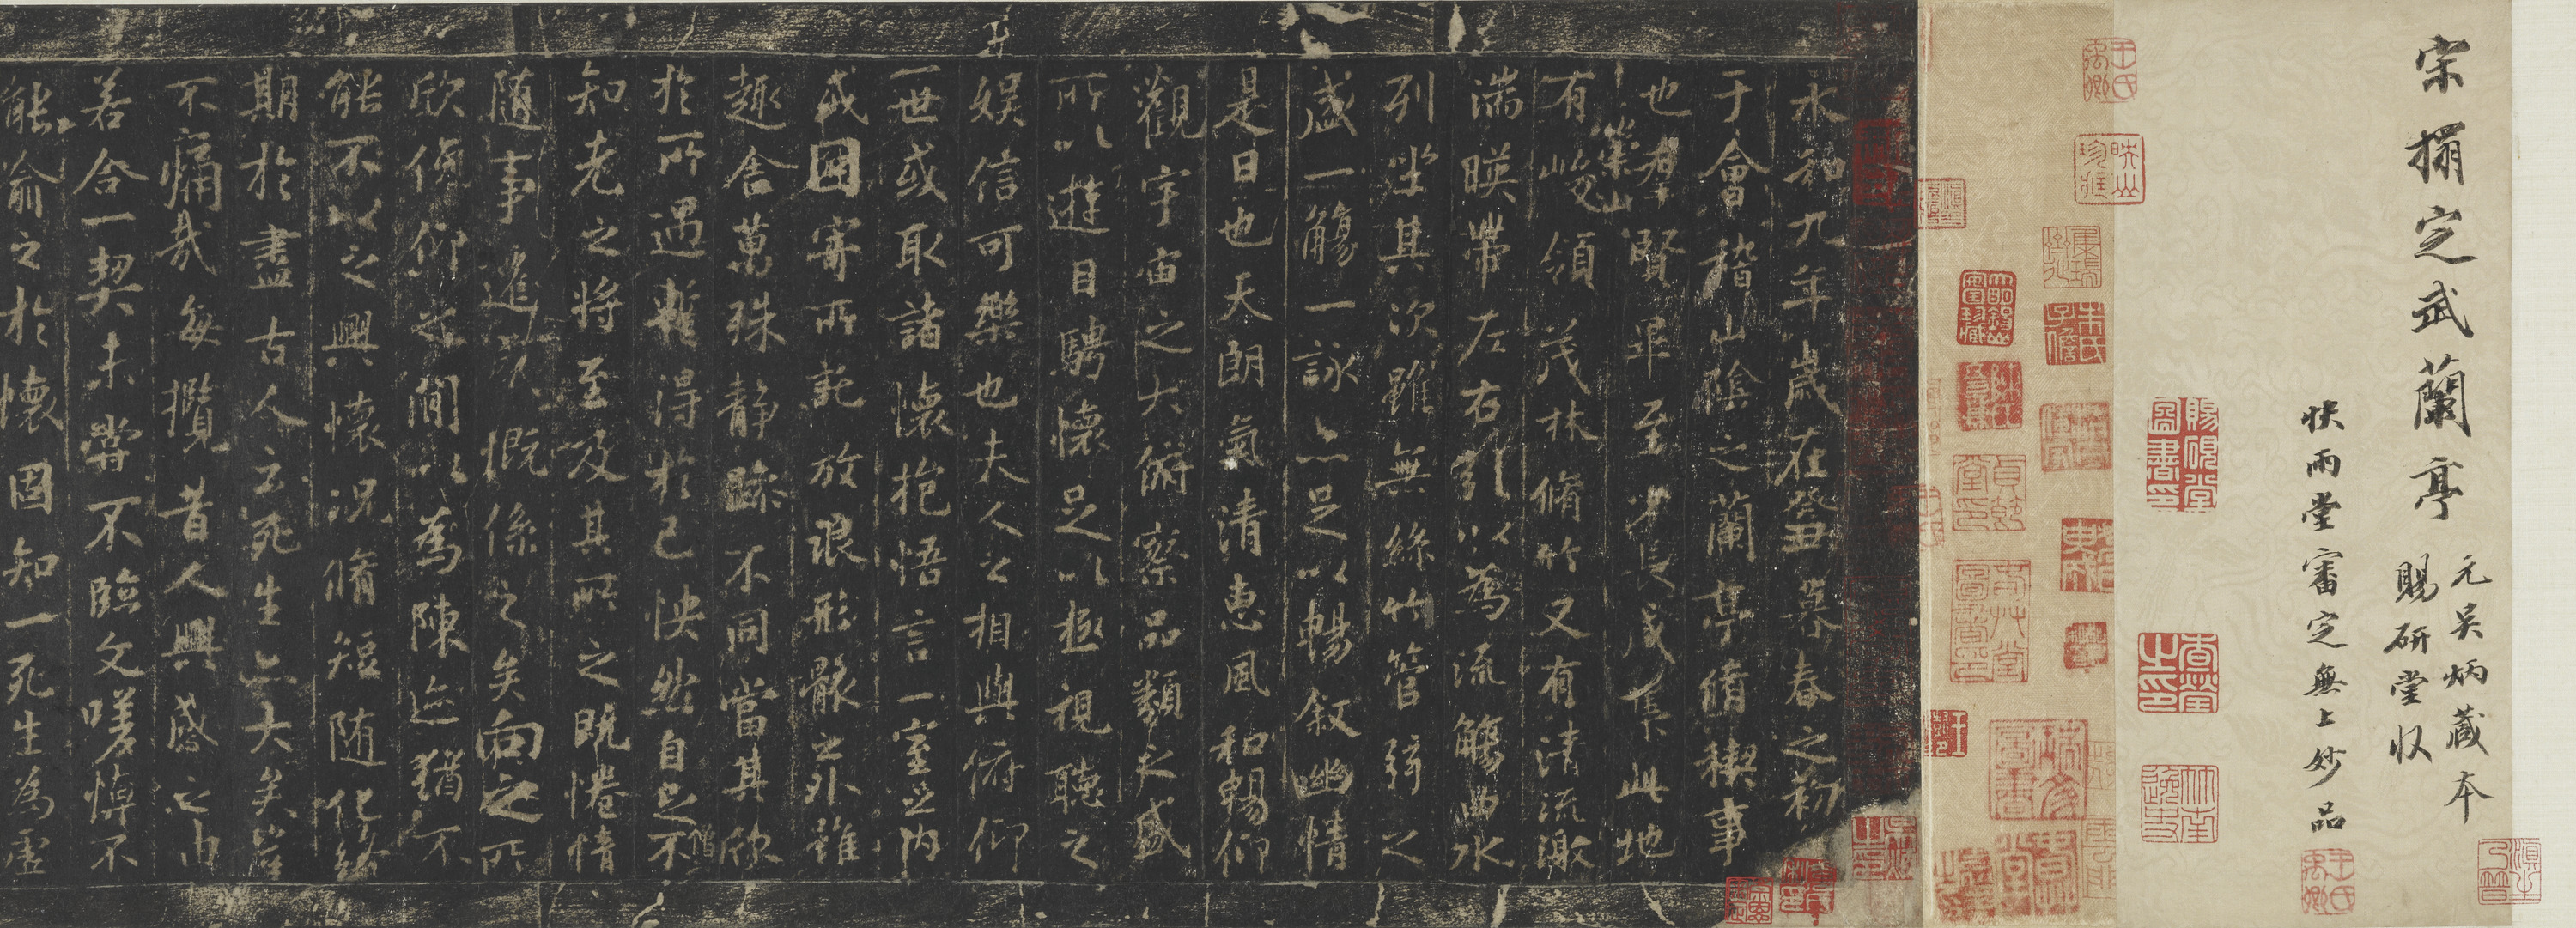 宋搨定武蘭亭
元吳炳藏本
賜研堂收
快雨堂審定無上妙品
永和九年歲在癸丑暮春之初
于會稽山陰之蘭亭脩稧事
也羣賢畢至少長咸集此地
崇山
有峻領茂林脩竹又有清流激
湍暎帶左右引以為流觴曲水
列坐其次雖無絲竹管弦之
盛一觴一詠亦足以暢叙幽情
是日也天朗氣清惠風和暢仰
觀宇宙之大俯察品類之盛
所以遊目騁懷足以極視聽之
娛信可樂也夫人之相與俯仰
一世或取諸懷抱悟言一室之內
或因寄所託放浪形骸之外雖
趣舍萬殊静躁不同當其欣
於所遇暫得於己怏然自足不
知老之將至及其所之既惓情
随事遷感慨係之矣向之所
欣俛仰之間以為陳迹猶不
能不以之興懷況脩短随化終
期於盡古人云死生亦大矣豈
不痛哉每攬昔人興感之由
若合一契未嘗不臨文嗟悼不
能喻之於懷固知一死生為虛
王氏禹卿
賜硯堂圖書印